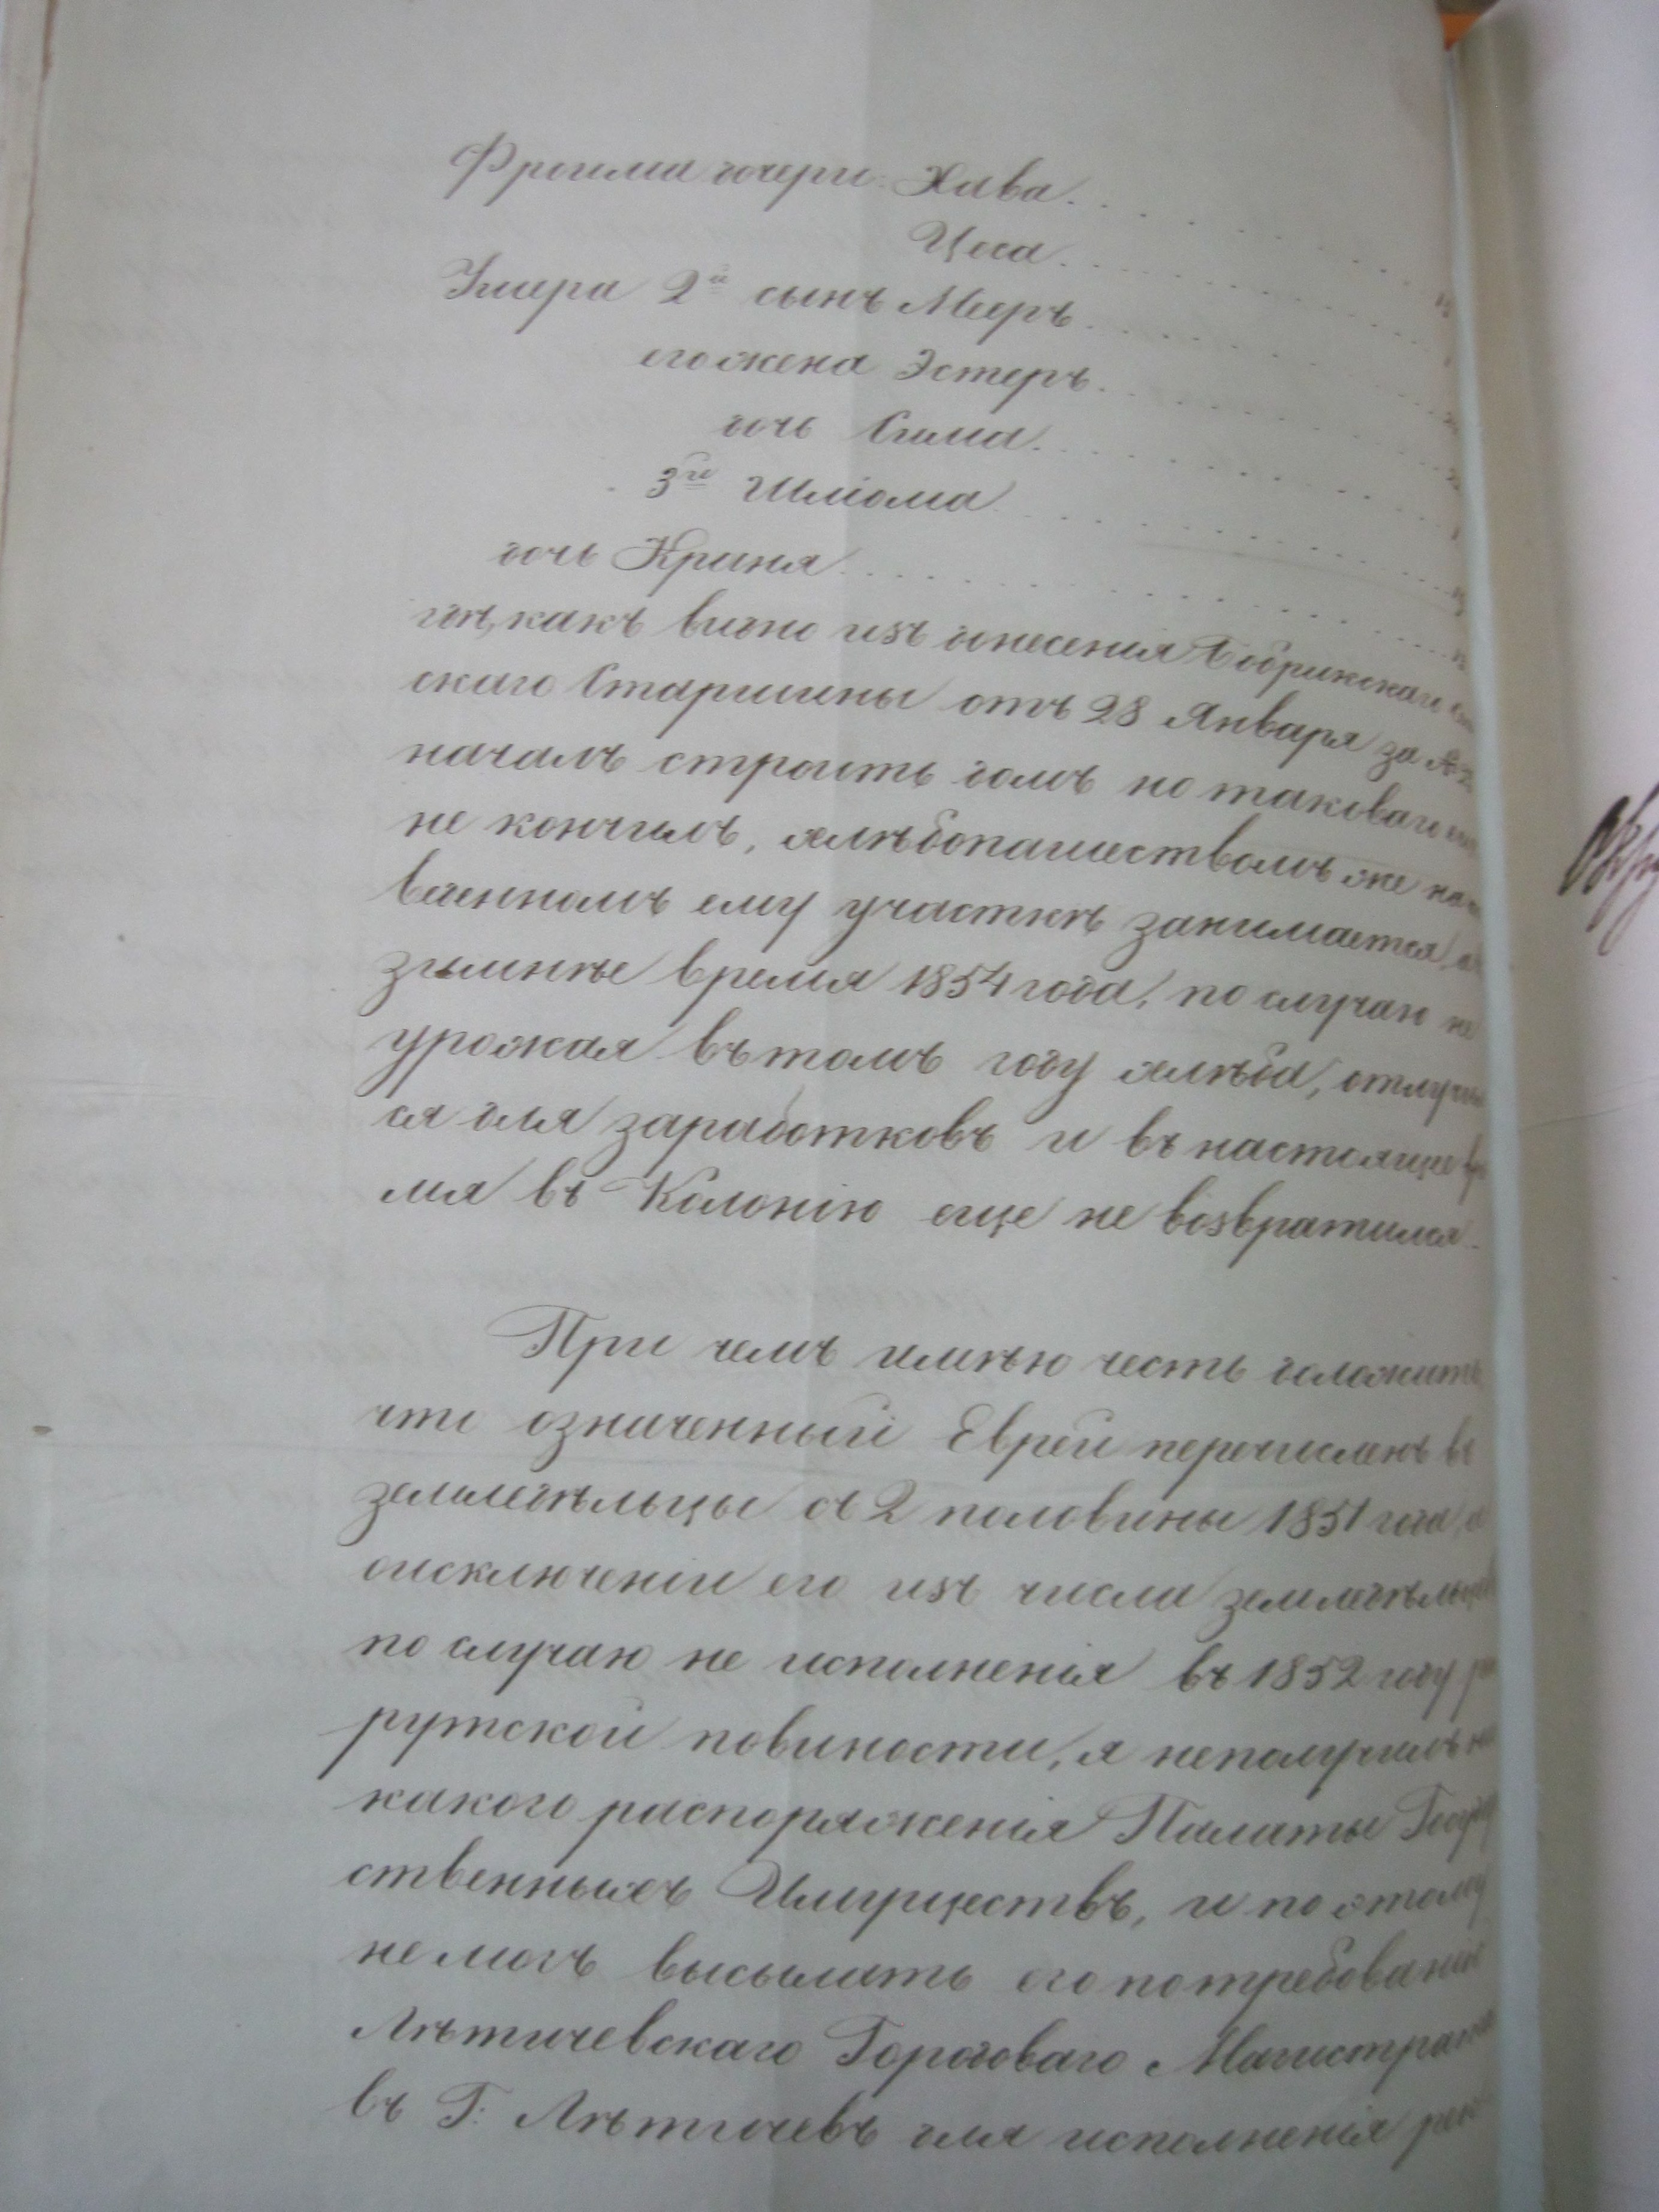 Фроима дочери: Хава.
Цеса.
Умера 2й сынъ Мееръ.
его жена Эстеръ.
дочь Сима.
3го Шліома
дочь Криня
какъ видно изъ донесенія Бобринскаго
скаго Старшины отъ 28 Января за №
началъ строить домъ но таковаго
не кончилъ, хлѣбопашествомъ же на
веденномъ ему участкѣ занимается, а
зимнѣе время 1854 года, по случаю не
урожая въ томъ году хлѣба, отлучил
ся для заработковъ и въ настоящее вре
мя въ Колонію еще не возвратился.
При чемъ имѣю честь доложить
что означенный Еврей перечисленъ въ
земледѣльцы съ 2 половины 1851 года, а
оисключеніи его изъ числа земледѣльцевъ
по случаю не исполненія въ 1852 году ре
рутской повиности, я неполучилъ ни
какого распоряженія Палаты Госуда
ственныхъ Имуществъ, и по этому
не могъ высылать его по требованію
Лѣтичевскаго Городоваго Магистрата
въ Г. Лѣтичевъ для исполненія рек